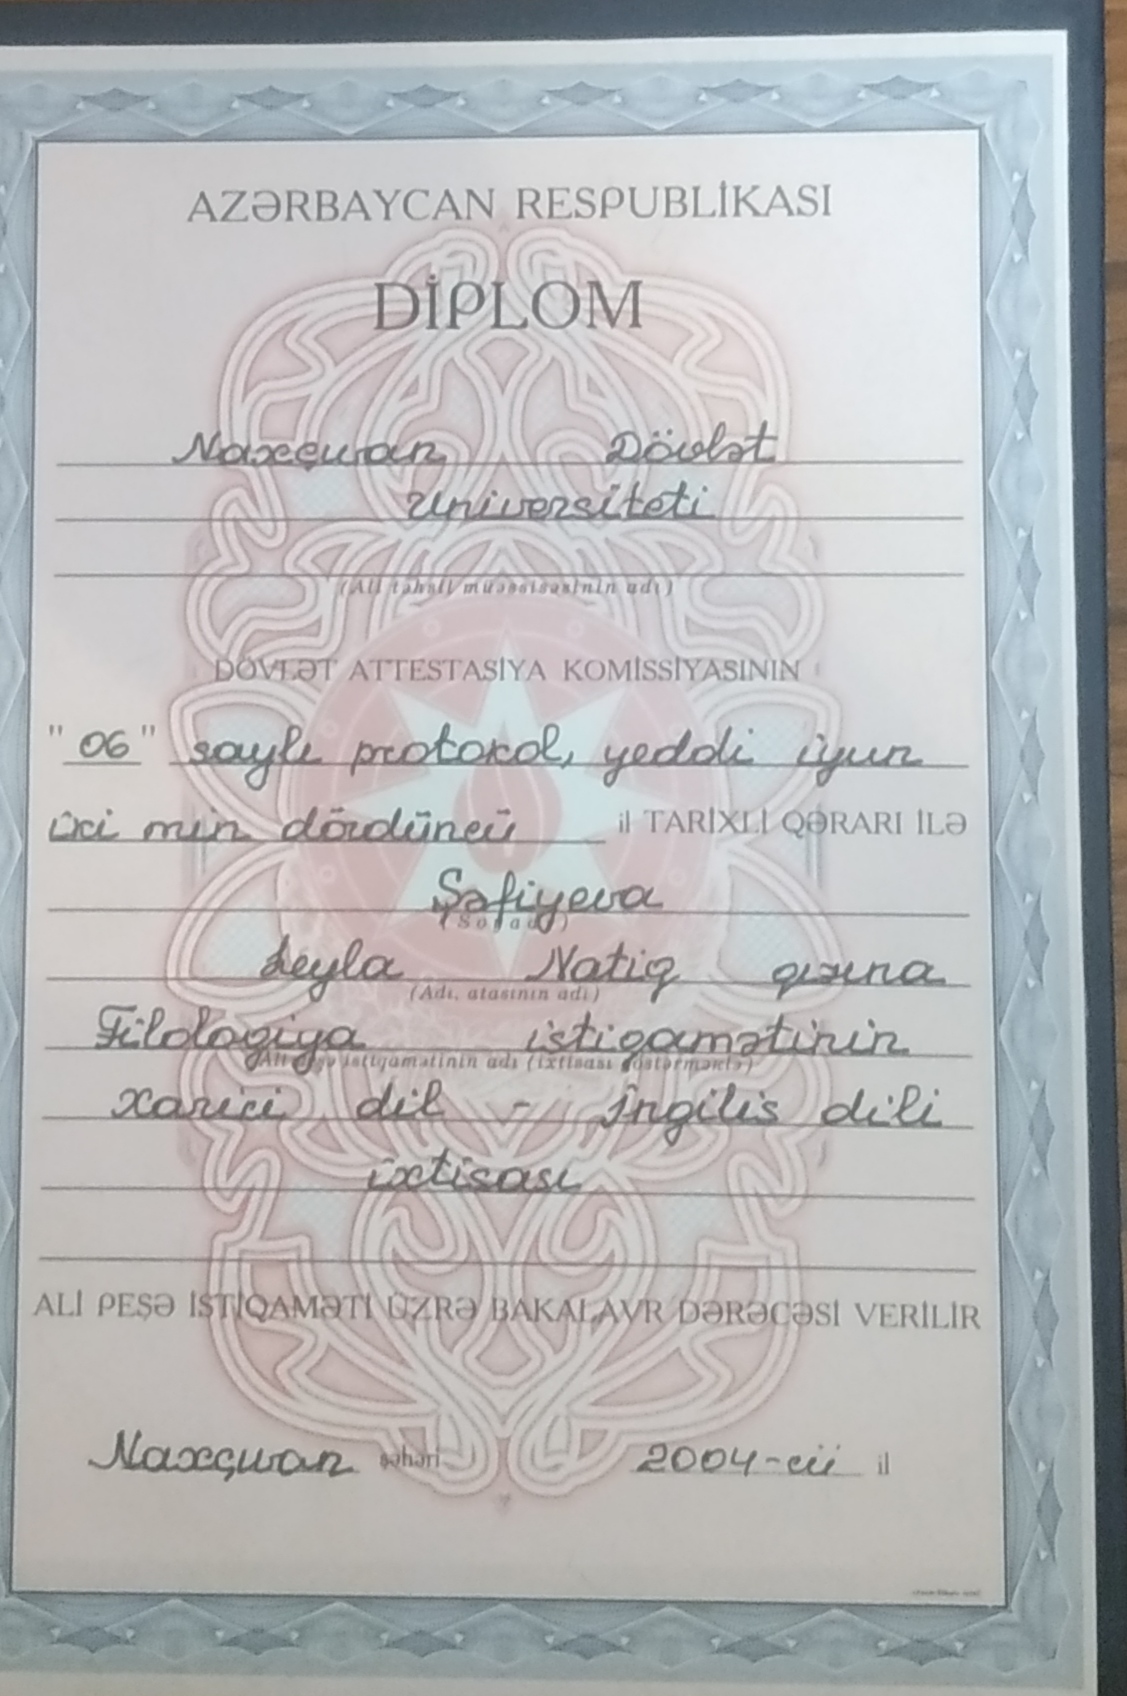 AZƏRBAYCAN RESPUBLİKASI
DİPLOM
Naxçıvan Dövlət
Universiteti
(Ali təhsil müəssisəsinin adı)
DÖVLƏT ATTESTASİYA KOMİSSİYASININ
"06" saylı protokol, yeddi iyun
iki min dördüncü il TARİXLİ QƏRARI İLƏ
Şəfiyeva
(Soyadı)
Leyla Natiq qızına
(Adı, atasının adı)
Filologiya istiqamətinin
(Ali peşə istiqamətinin adı (ixtisası göstərməklə)
xarici dil - İngilis dili
ixtisası
ALİ PEŞƏ İSTİQAMƏTİ ÜZRƏ BAKALAVR DƏRƏCƏSİ VERİLİR
Naxçıvan şəhəri 2004-cü il